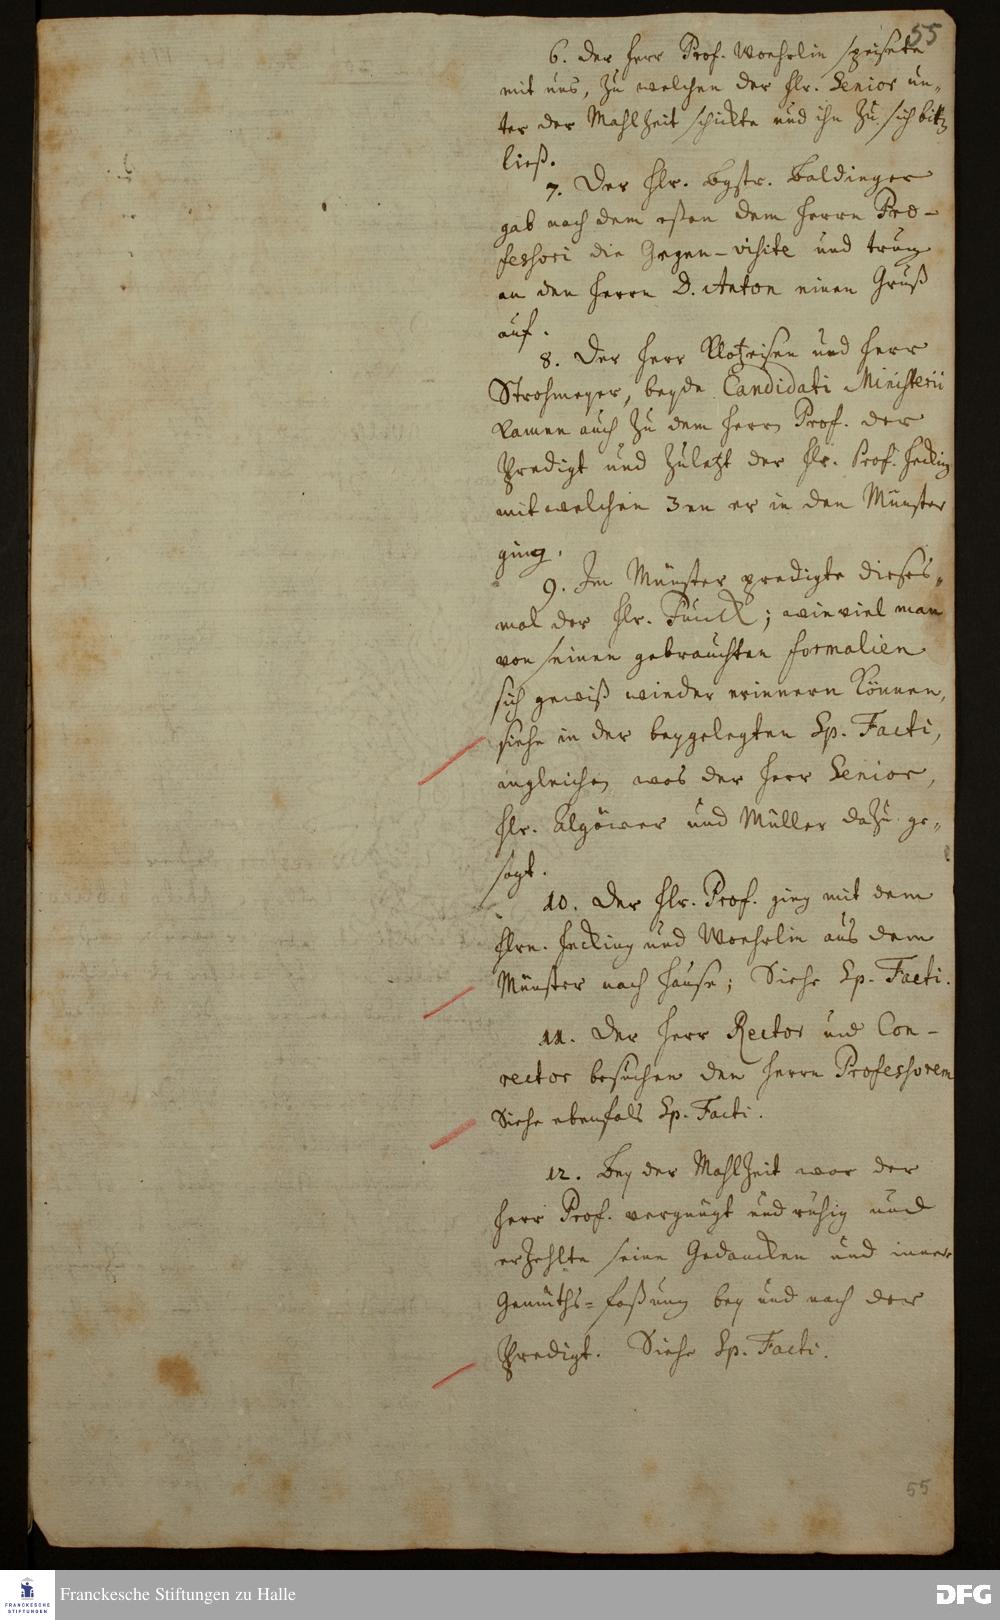 55
6. Der Herr Prof. Woehrlin speisete
mit uns, zu welchen der Hr. Senior un-
ter der Mahlzeit schickte und ihn zu sich bitten
ließ.
7. Der Hr. Bgstr. Baldinger
gab nach dem eßen dem Herrn Pro-
fessori die Gegen-visite und trug
an den Herrn D. Anton einen Gruß
auf.
8. Der Herr Klotzeisen und Herr
Strohmeyer, beyde Candidati Ministerii
kamen auch zu dem Herrn Prof. der
Predigt und zuletzt der Hr. Prof. Hecking
mit welchen 3en er in den Münster
ging.
9. Im Münster predigte dieses-
mal der Hr. Funck; wie viel man
von seinen gebrauchten formalien
sich gewiß wieder erinnern können,
siehe in der beygelegten Sp. Facti,
ingleichen was der Herr Senior,
Hr. Algöwer und Müller dazu ge-
sagt.
10. Der Hr. Prof. ging mit dem
Hrn. Hecking und Woehrlin aus dem
Münster nach Hause; Siehe Sp. Facti.
11. Der Herr Rector und Con-
rector besuchen den Herrn Professorem
Siehe ebenfals Sp. Facti.
12. Bey der Mahlzeit war der
Herr Prof. vergnügt und ruhig und
erzehlte seine Gedancken und innere
Gemüths-faßung bey und nach der
Predigt. Siehe Sp. Facti.
55
FRANCKESCHE
STIFTUNGEN
Franckesche Stiftungen zu Halle
DFG